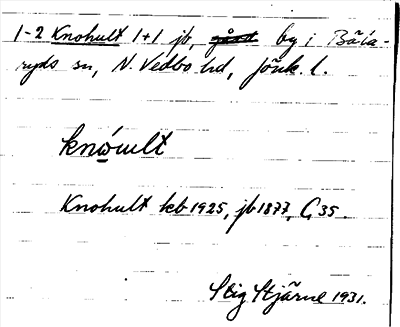 1-2 Knohult 1+1 jb, gård by i Bäla-
ryds sn, N. Vedbo hd, Jönk. l.
knóult
Knohult kb 1925, jb 1877, G 35.
Stig Stjärne 1931.